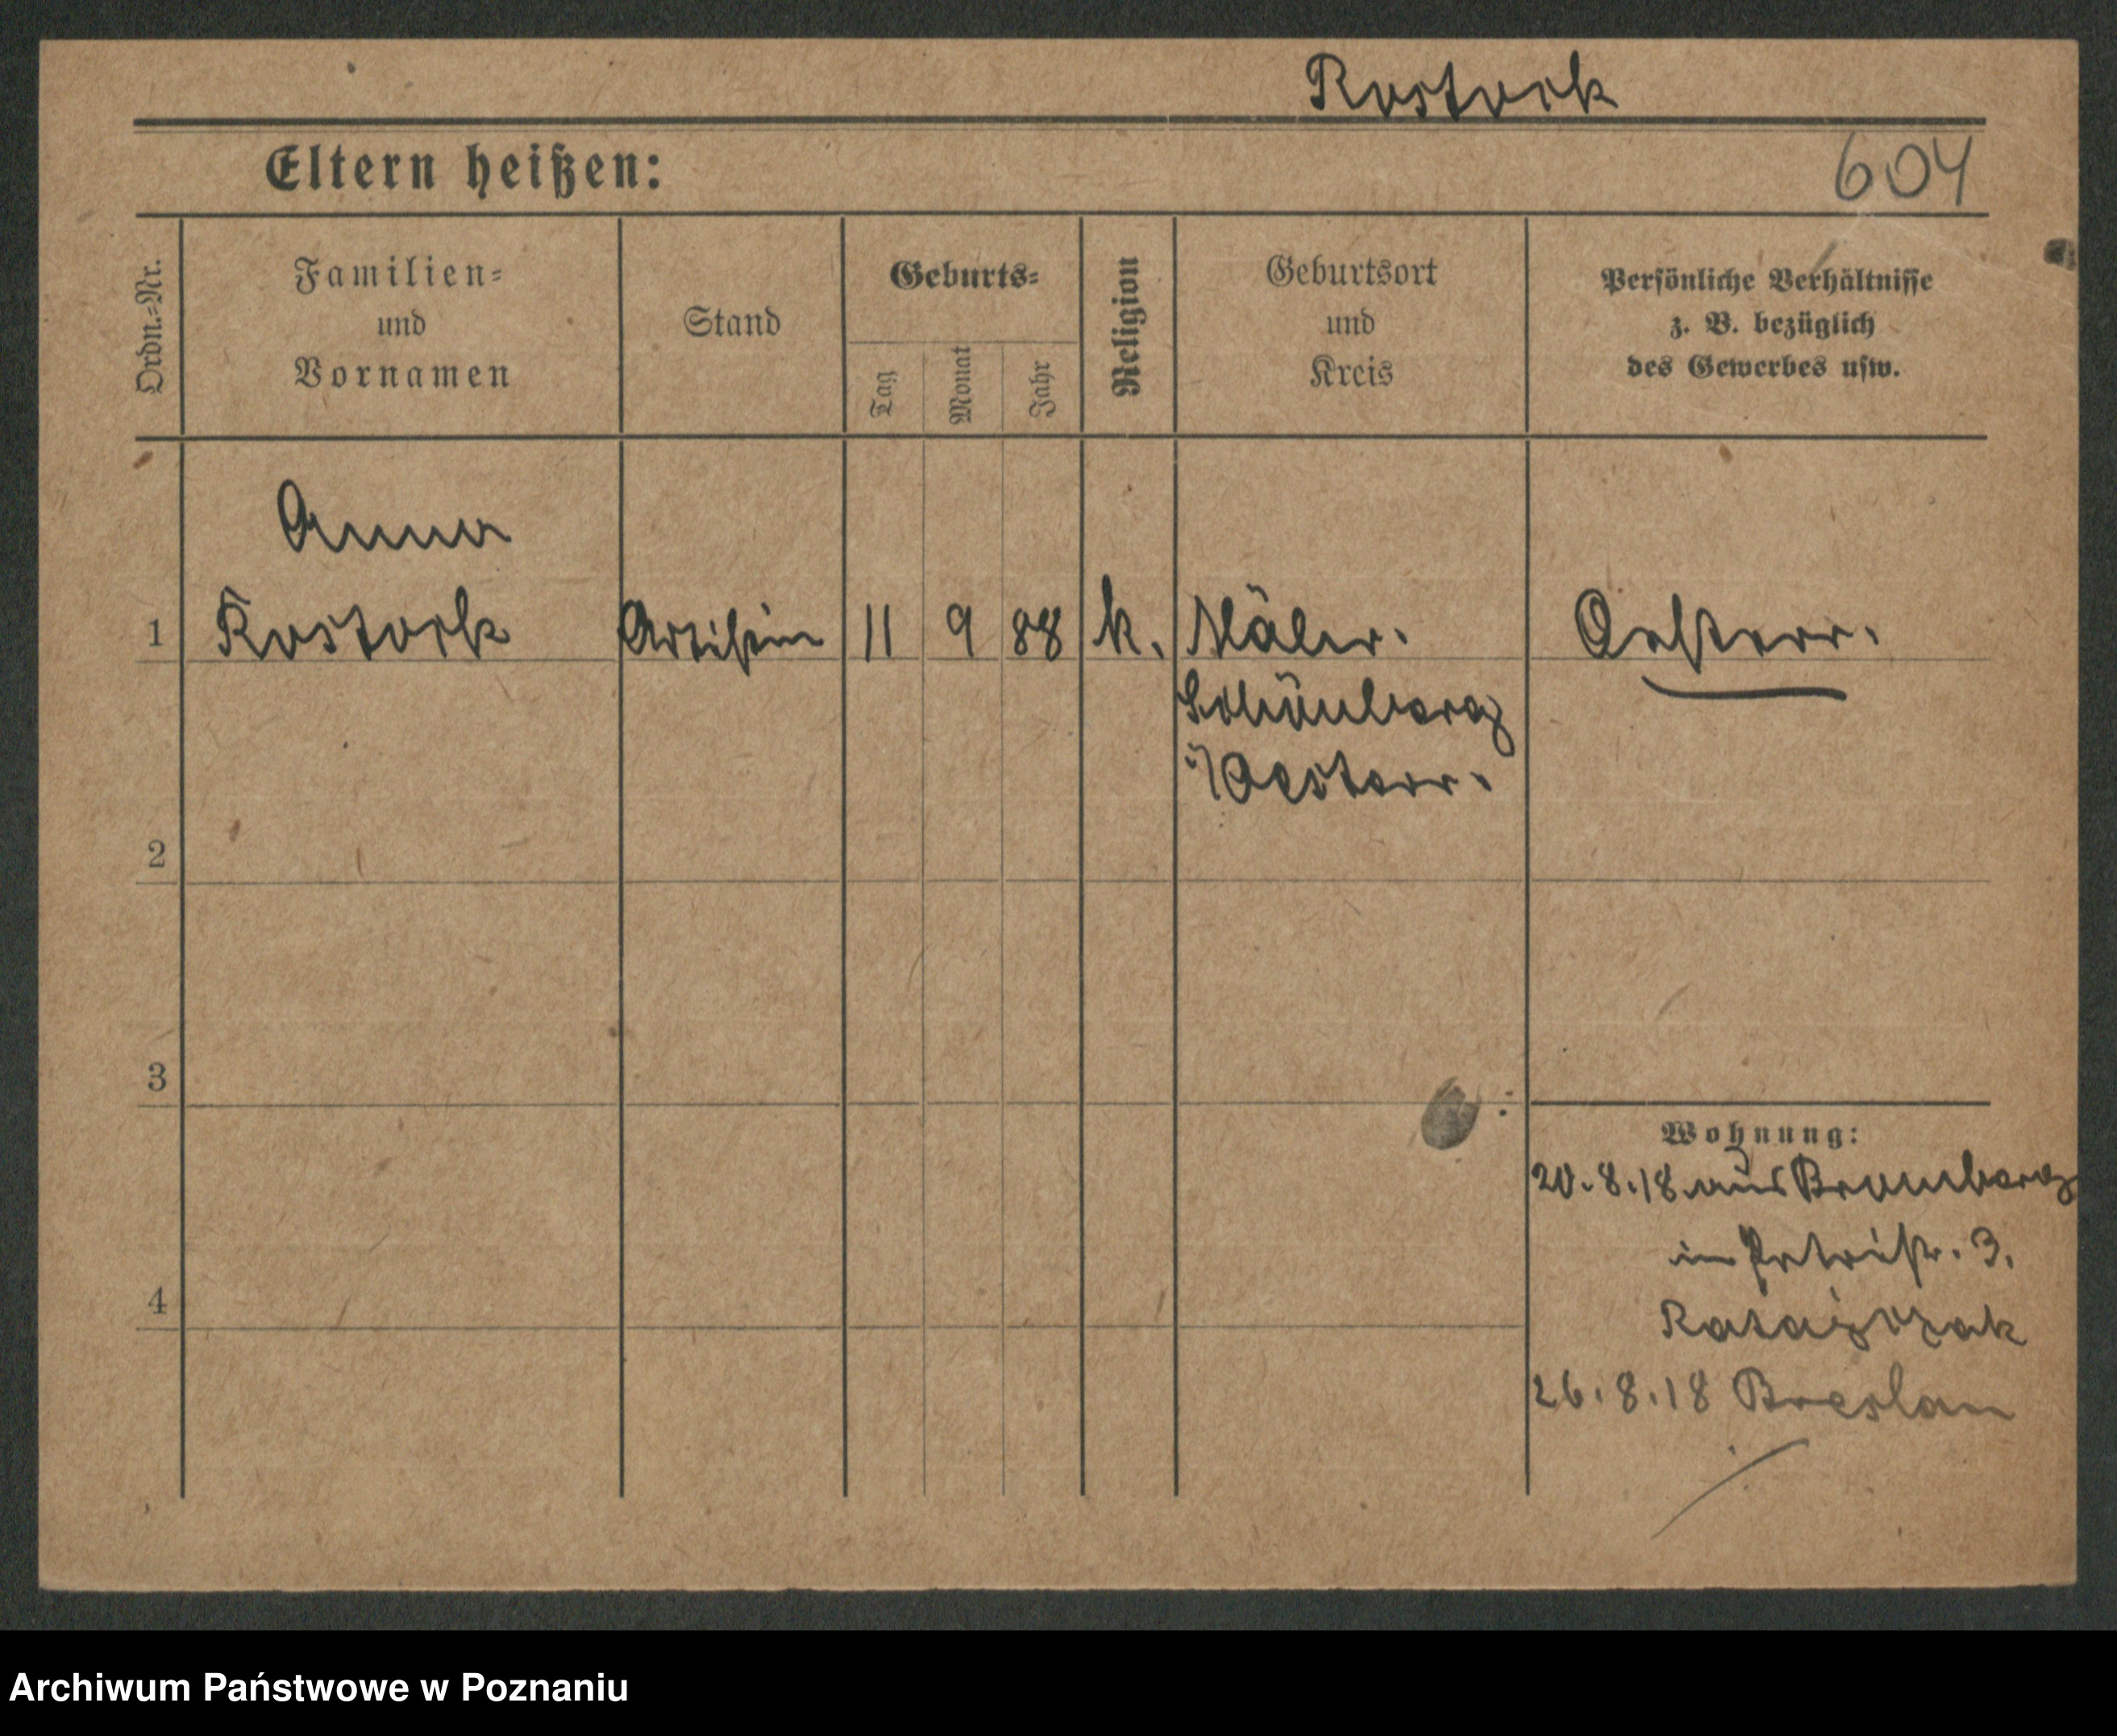 Rostock
Eltern heißen:
604
Ordn.-Nr.
Familien-
und
Vornamen
Stand
Geburts-
Tag
Monat
Jahr
Religion
Geburtsort
und
Kreis
Persönliche Verhältnisse
z. B. bezüglich
des Gewerbes usw.
Anna
1 Rostock Artistin 11 9 88 k. Oesterr.
Schönberg
i/Oesterr.
2
3
4
Wohnung:
20.8.18 aus Bromberg
in Petristr. 3.
Ratajczak
26.8.18 Breslau
Archiwum Państwowe w Poznaniu